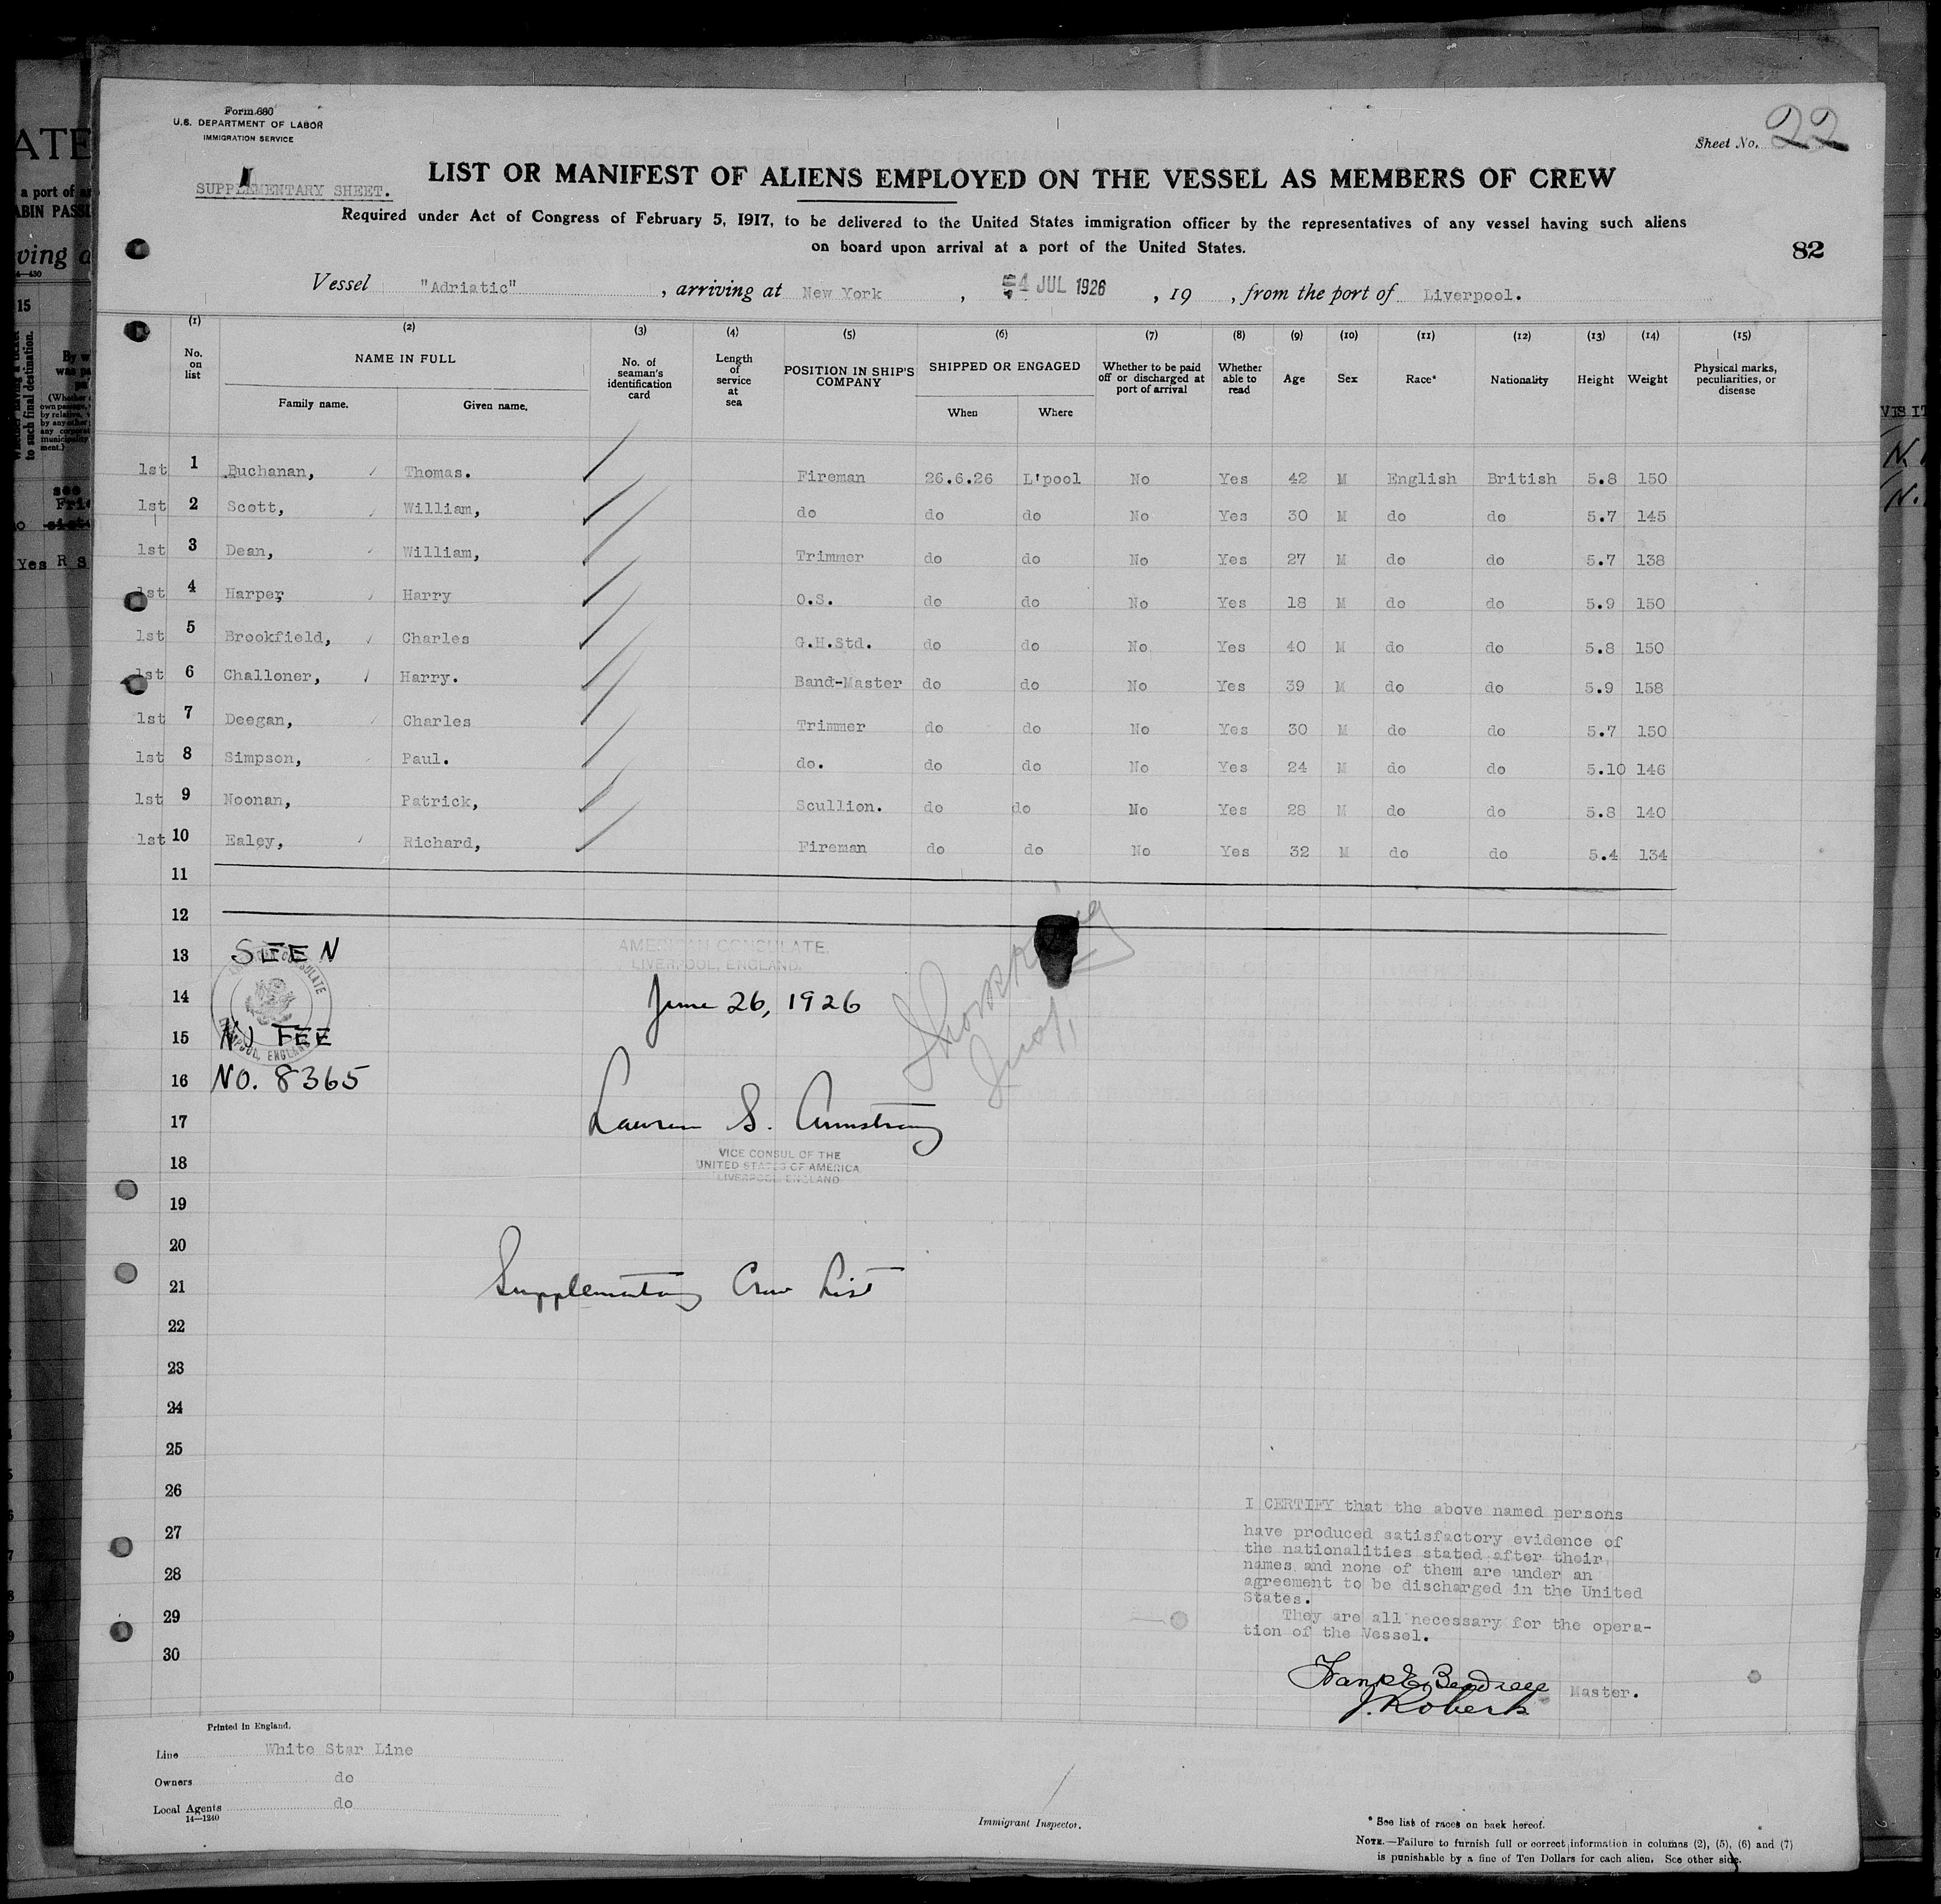 Form 680
U.S. DEPARTMENT OF LABOR
IMMIGRATION SERVICE
Sheet No. 22
SUPPLEMENTARY SHEET.
LIST OR MANIFEST OF ALIENS EMPLOYED ON THE VESSEL AS MEMBERS OF CREW
Required under Act of Congress of February 5, 1917, to be delivered to the United States immigration officer by the representatives of any vessel having such aliens
on board upon arrival at a port of the United States.
82
Vessel "Adriatic", arriving at New York, 4 JUL 1926, 19 , from the port of Liverpool.
(1) (2) (3) (4) (5) (6) (7) (8) (9) (10) (11) (12) (13) (14) (15)
No. on list NAME IN FULL Family name. Given name. No. of seaman's identification card Length of service at sea POSITION IN SHIP'S COMPANY SHIPPED OR ENGAGED When Where Whether to be paid off or discharged at port of arrival Whether able to read Age Sex Race* Nationality Height Weight Physical marks, peculiarities, or disease
1st 1 Buchanan, Thomas. Fireman 26.6.26 L'pool No Yes 42 M English British 5.8 150
1st 2 Scott, William, do do do No Yes 30 M do do 5.7 145
1st 3 Dean, William, Trimmer do do No Yes 27 M do do 5.7 138
1st 4 Harper, Harry O.S. do do No Yes 18 M do do 5.9 150
1st 5 Brookfield, Charles G.H.Std. do do No Yes 40 M do do 5.8 150
1st 6 Challoner, Harry. Band-Master do do No Yes 39 M do do 5.9 158
1st 7 Deegan, Charles Trimmer do do No Yes 30 M do do 5.7 150
1st 8 Simpson, Paul. do. do do No Yes 24 M do do 5.10 146
1st 9 Noonan, Patrick, Scullion. do do No Yes 28 M do do 5.8 140
1st 10 Ealey, Richard, Fireman do do No Yes 32 M do do 5.4 134
11
12
13 SEEN
AMERICAN CONSULATE.
LIVERPOOL, ENGLAND.
14 June 26, 1926
15 NO FEE
16 NO. 8365
17 Lauren S. Armstrong
VICE CONSUL OF THE
18 UNITED STATES OF AMERICA
LIVERPOOL ENGLAND
19
20
21 Supplementary Crew List
22
23
24
25
26
I CERTIFY that the above named persons
27 have produced satisfactory evidence of
the nationalities stated after their
names and none of them are under an
28 agreement to be discharged in the United
States.
29 They are all necessary for the opera-
tion of the Vessel.
30
Master.
J. Roberts
Printed in England.
Line White Star Line
Owners do
Local Agents do
14—1240
Immigrant Inspector.
* See list of races on back hereof.
NOTE.—Failure to furnish full or correct information in columns (2), (5), (6) and (7)
is punishable by a fine of Ten Dollars for each alien. See other side.